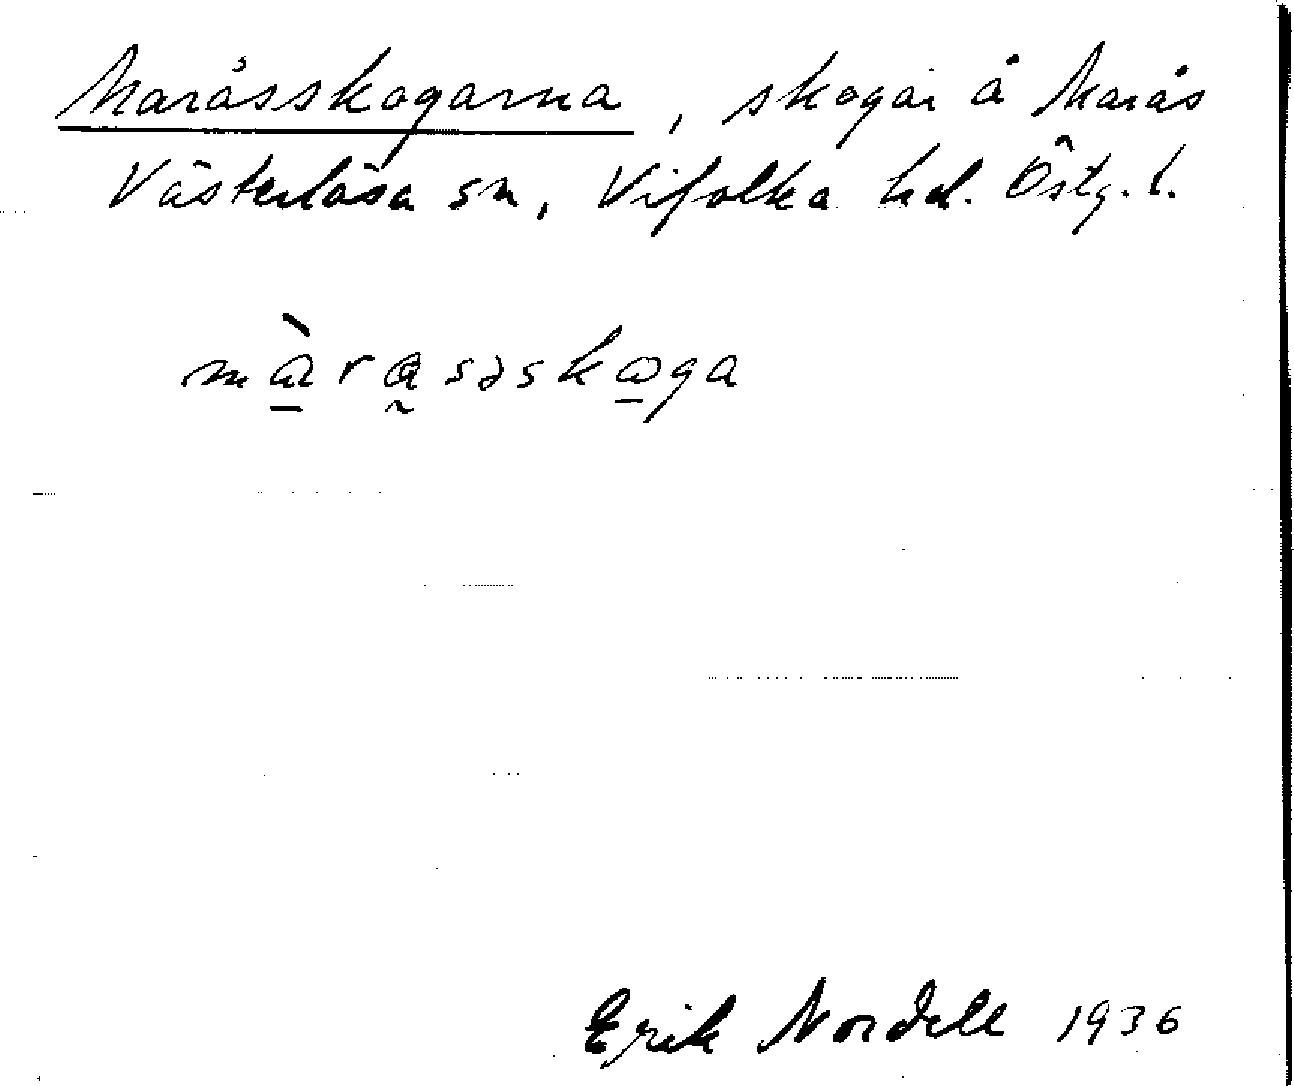 Maråsskogarna, skogar å Marås
Västerlösa sn, Vifolka hd. Östg. l.
màrasəskoga
Erik Nordell 1936